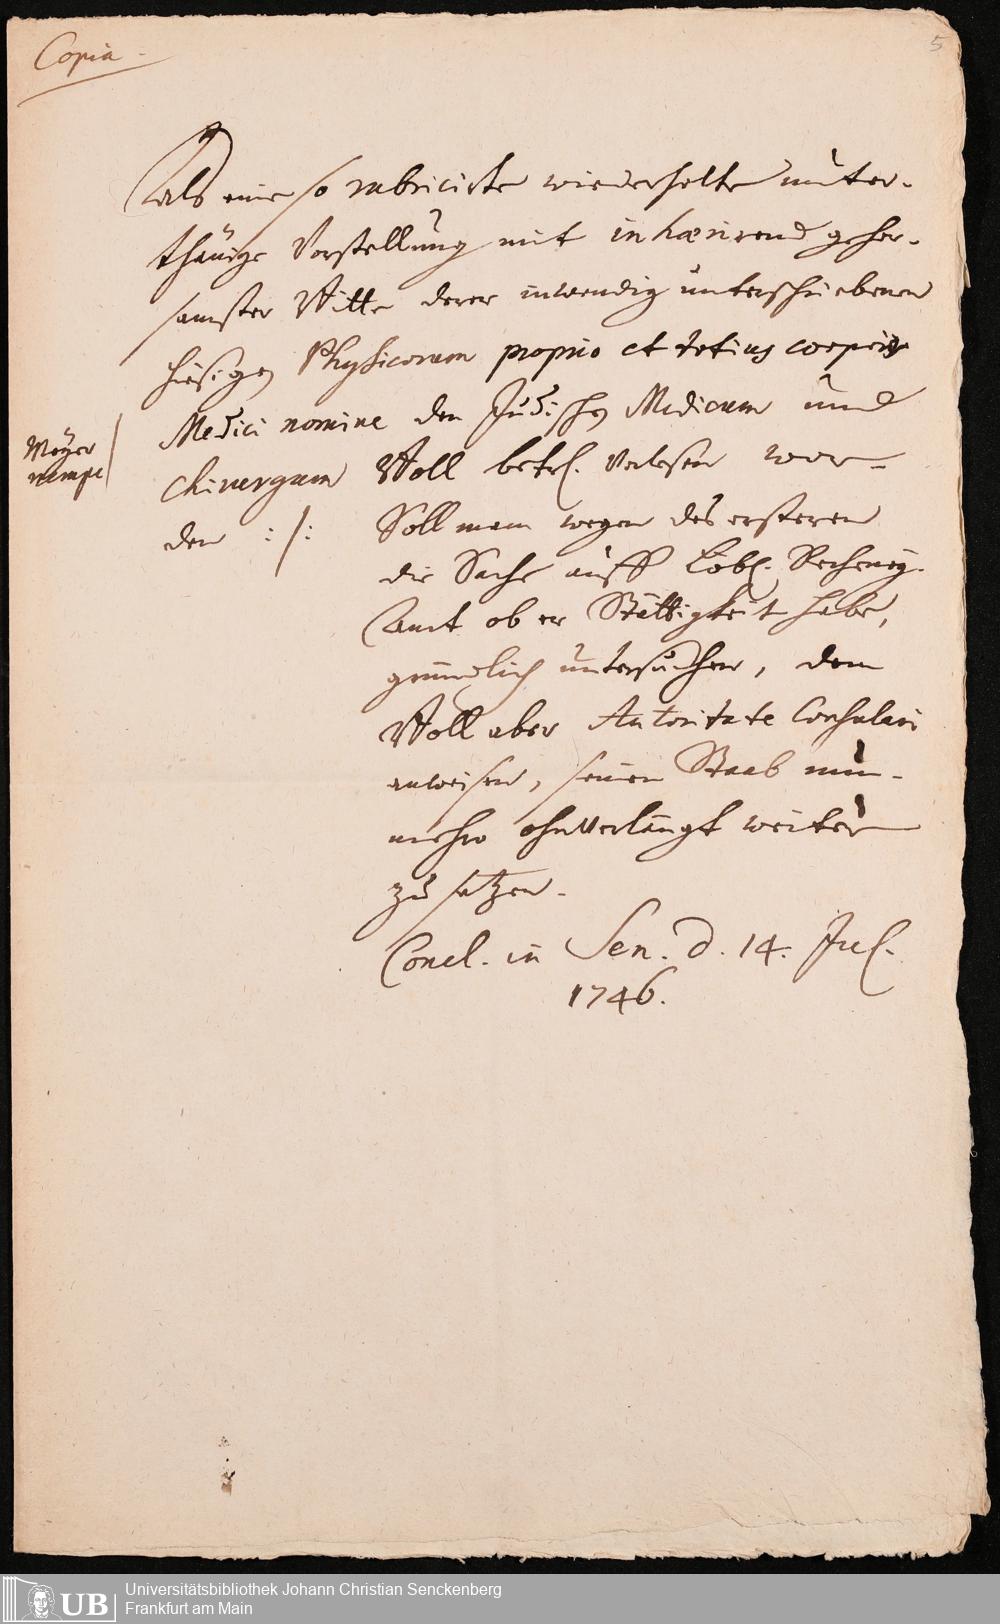 Copia
5
Als eine so rubricirte wiederholte unter-
thänige Vorstellung mit inhærirend gehor-
samster Bitte derer inwendig unterschriebenen
hiesigen Physicorum proprio et totius corporis
Medici nomine den Judischen Medicum und
Meÿer
nempe
chirurgum Woll betrl. verlesen wor-
den :/: Soll man wegen des ersteren
die Sache auff Löbl. Recheneÿ-
Amt ob er Stättigkeit habe,
gründlich untersuchen, dem
Woll aber Autoritate Consulari
anweisen, seinen Staab nun-
mehro ohnverlängt weiter
zu setzen.
Concl. in Sen. d. 14. Jul.
1746.
UB
Universitätsbibliothek Johann Christian Senckenberg
Frankfurt am Main